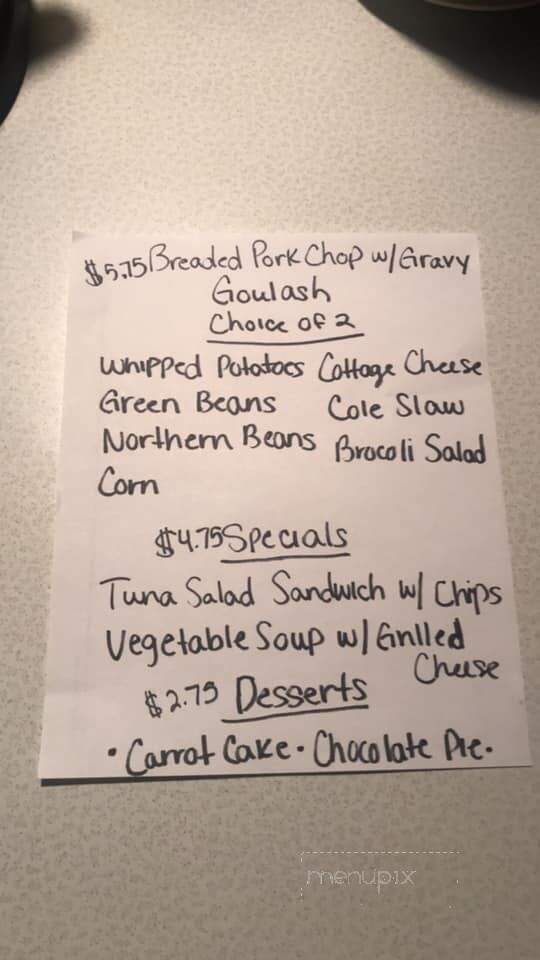 $5.75 Breaded Pork Chop w/Gravy
Goulash
Choice of 2
Whipped Potatoes Cottage Cheese
Green Beans Cole Slaw
Northern Beans Brocoli Salad
Corn
$4.75 Specials
Tuna Salad Sandwich w/ Chips
Vegetable Soup w/ Grilled
Cheese
$2.75 Desserts
• Carrot Cake • Chocolate Pie •
menupix